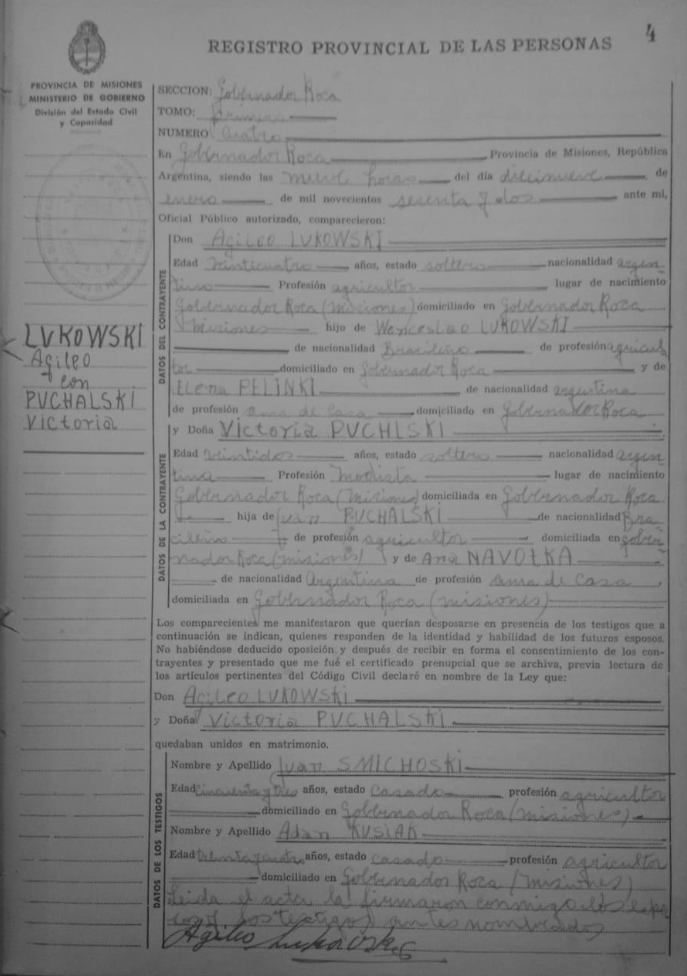 4
REGISTRO PROVINCIAL DE LAS PERSONAS
PROVINCIA DE MISIONES
MINISTERIO DE GOBIERNO
División del Estado Civil
y Capacidad
LUKOWSKI
Agileo
con
PUCHALSKI
Victoria
SECCION: Gobernador Roca
TOMO: Primero
NUMERO Cuatro
En Gobernador Roca Provincia de Misiones, República
Argentina, siendo las nueve horas del día diecinueve de
enero de mil novecientos setenta y dos ante mi,
Oficial Público autorizado, comparecieron:
DATOS DEL CONTRAYENTE
Don Agileo LUKOWSKI
Edad veinticuatro años, estado soltero nacionalidad argen-
tino Profesión agricultor lugar de nacimiento
Gobernador Roca (Misiones) domiciliado en Gobernador Roca
Misiones hijo de Wenceslao LUKOWSKI
de nacionalidad Brasileño de profesión agricul
tor domiciliado en Gobernador Roca y de
Elena PELINKI de nacionalidad argentina
de profesión ama de casa domiciliado en Gobernador Roca
DATOS DE LA CONTRAYENTE
y Doña Victoria PUCHLSKI
Edad veintidos años, estado soltera nacionalidad argen
tina Profesión Modista lugar de nacimiento
Gobernador Roca (Misiones) domiciliada en Gobernador Roca
hija de Ivan PUCHALSKI de nacionalidad Bra
cileño de profesión agricultor domiciliada en Gober
nador Roca (misiones) y de Ana NAVOLKA
de nacionalidad Argentina de profesión ama de casa
domiciliada en Gobernador Roca (misiones)
Los comparecientes me manifestaron que querían desposarse en presencia de los testigos que a
continuación se indican, quienes responden de la identidad y habilidad de los futuros esposos.
No habiéndose deducido oposición y después de recibir en forma el consentimiento de los con-
trayentes y presentado que me fué el certificado prenupcial que se archiva, previa lectura de
los artículos pertinentes del Código Civil declaré en nombre de la Ley que:
Don Agileo LUKOWSKI
y Doña Victoria PUCHALSKI
quedaban unidos en matrimonio.
DATOS DE LOS TESTIGOS
Nombre y Apellido Ivan SMICHOSKI
Edad cincuenta y tres años, estado casado profesión agricultor
domiciliado en Gobernador Roca (misiones)
Nombre y Apellido Adan KUSIAK
Edad treinta y cuatro años, estado casado profesión agricultor
domiciliado en Gobernador Roca (misiones)
Leida el acta la firmaron conmigo los espo
y los testigos antes nombrados
Agileo Lukowski